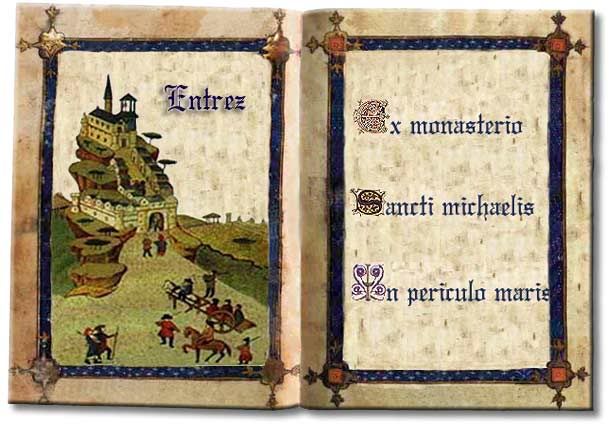 Entrez
Ex monasterio
Sancti michaelis
In periculo maris